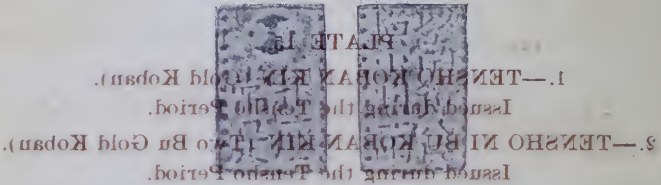 PLATE 15
1.—TENSHO KOBAN KIN (Gold Koban).
Issued during the Tensho Period.
2.—TENSHO NI BU KOBAN KIN (Two Bu Gold Koban).
Issued during the Tensho Period.